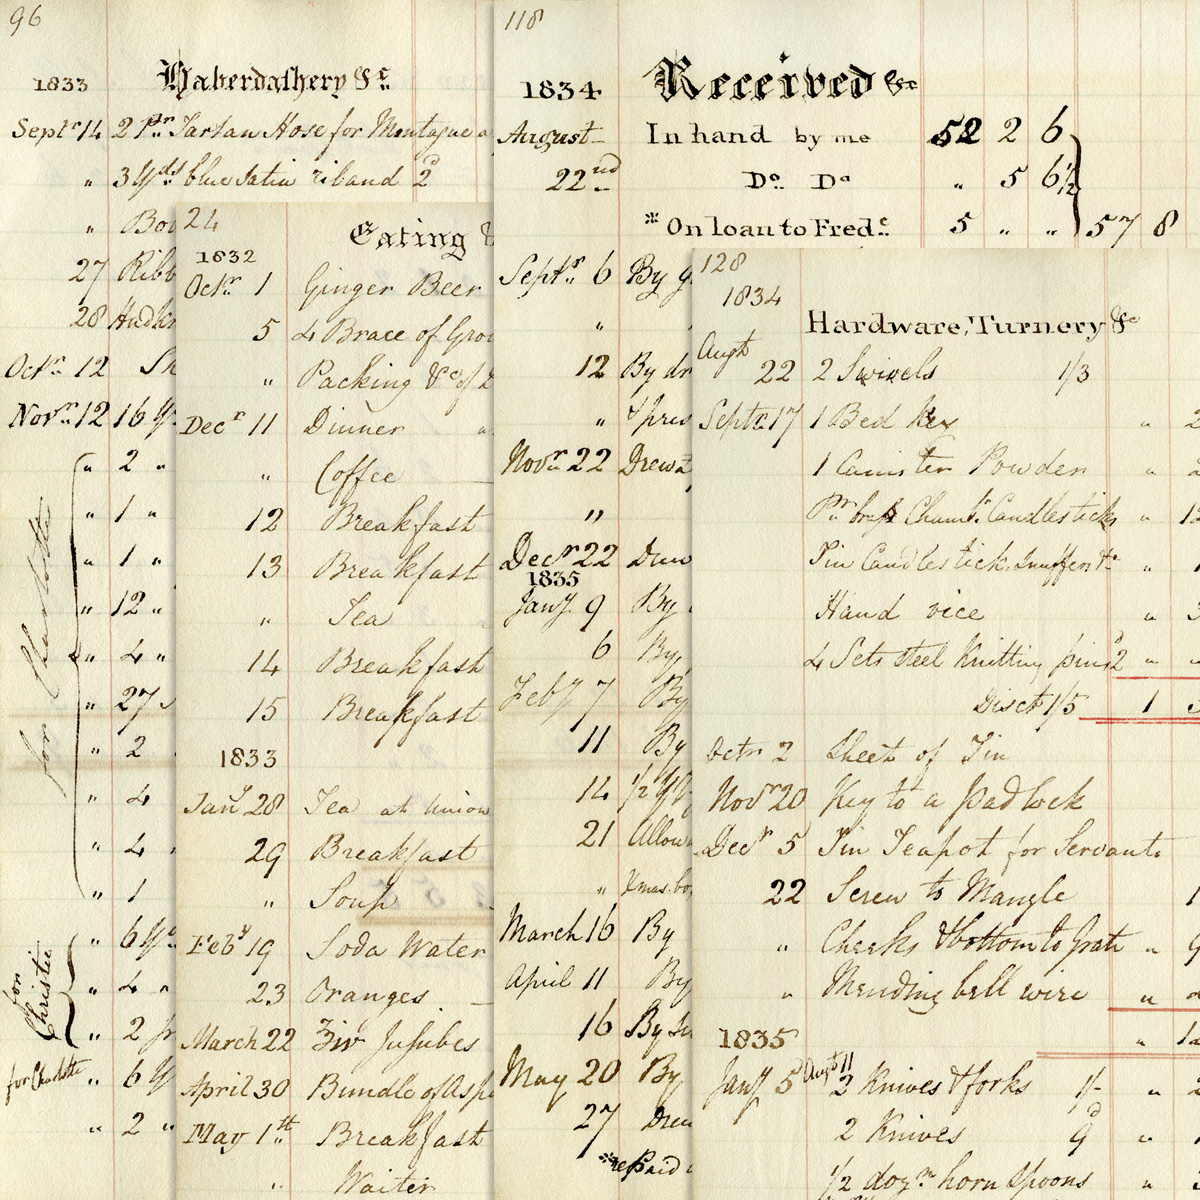 96
1833 Haberdashery &c.
Septr. 14 2 Pr. Tartan Hose for Montague
" 3 Yds blue Satin riband 2d
"
27 Ribb
28 Hndkr
Octr. 12 Sh
Novr. 12 16 Y
" 2 "
" 1 "
" 1 "
" 12 "
" 4 "
" 27
" 2
" 4
" 4
" 1
for Charlotte
" 6 Yd
" 4 "
" 2 pr
for Christie
for Charlotte " 6 Y
" 2 "
24
Eating &
1832
Octr. 1 Ginger Beer
5 4 Brace of Grou
" Packing &c of
Decr 11 Dinner "
" Coffee
12 Breakfast
13 Breakfast
" Tea
14 Breakfast
15 Breakfast
1833
Jany 28 Tea at Union
29 Breakfast
" Soup
Feby 19 Soda Water
23 Oranges
March 22 Jujubes
April 30 Bundle of Asp
May 1st Breakfast
" Waiter
118
1834 Received &c
August In hand by me 52 2 6
22nd Do. Do " 5 6½
* On loan to Fredc. 5 " " 57 8
Septr. 6 By g
"
12 By dr
" & pres
Novr 22 Drew
"
Decr 22 Drew
1835
Jany 9 By
6 By
Feby 7 By
11 By
14 ½ Y
21 Allow
" Xmas bo
March 16 By
April 11 By
16 By
May 20 By
27 Drew
* repaid
128
1834
Hardware, Turnery &c
Augt 22 2 Swivels 1/3
Septr. 17 1 Bed Key " 2
1 Canister Powder " 2
Pr. brass Chambr. Candlesticks " 12
Tin Candlestick, Snuffers &c " 1
Hand vice " 3
4 Sets steel Knitting pins 2d " "
Disct 1/5 1 3
Octr 2 Sheet of Tin
Novr 20 Key to a padlock
Decr 5 Tin Teapot for Servants
22 Screw to Mangle 1
" Cheeks & bottom to Grate " 9
" Mending bell wire " 2
1835 " 12
Jany 5 Augt 11 2 Knives & forks 1/- " 2
2 Knives 9d "
½ dozn horn spoons " 3